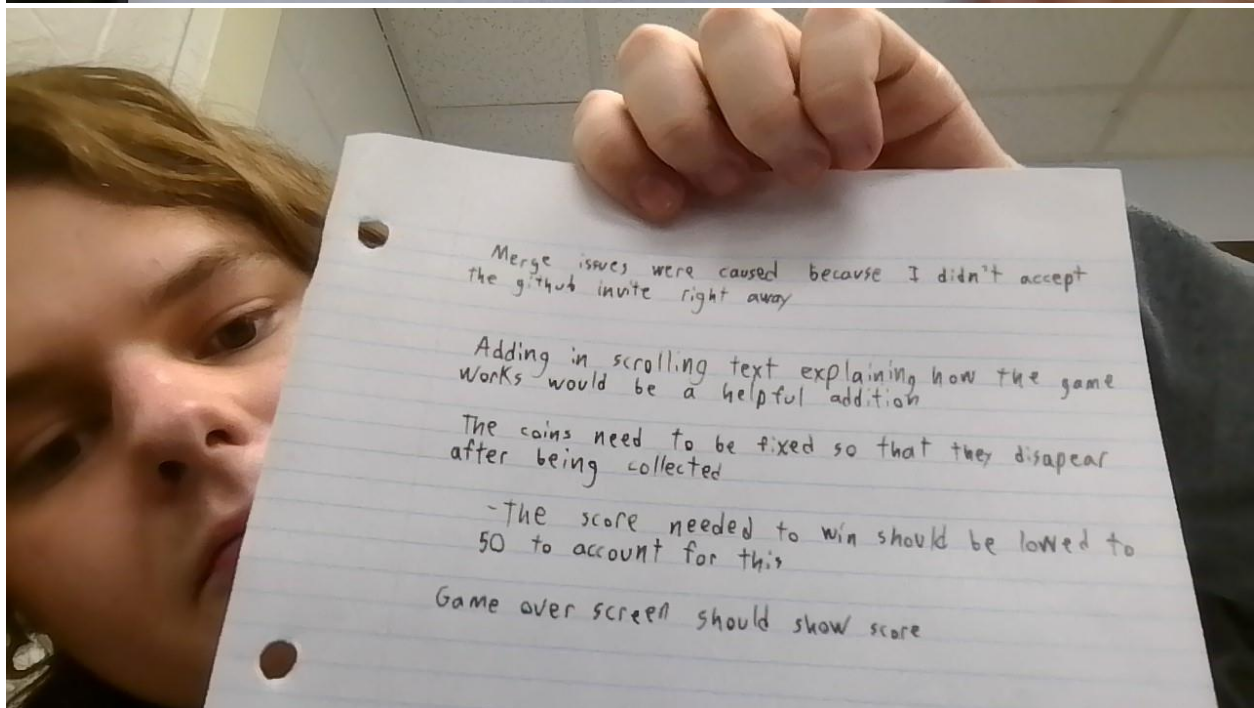 Merge issues were caused because I didn't accept
the github invite right away
Adding in scrolling text explaining how the game
works would be a helpful addition
The coins need to be fixed so that they disapear
after being collected
-The score needed to win should be lowed to
50 to account for this
Game over screen should show score